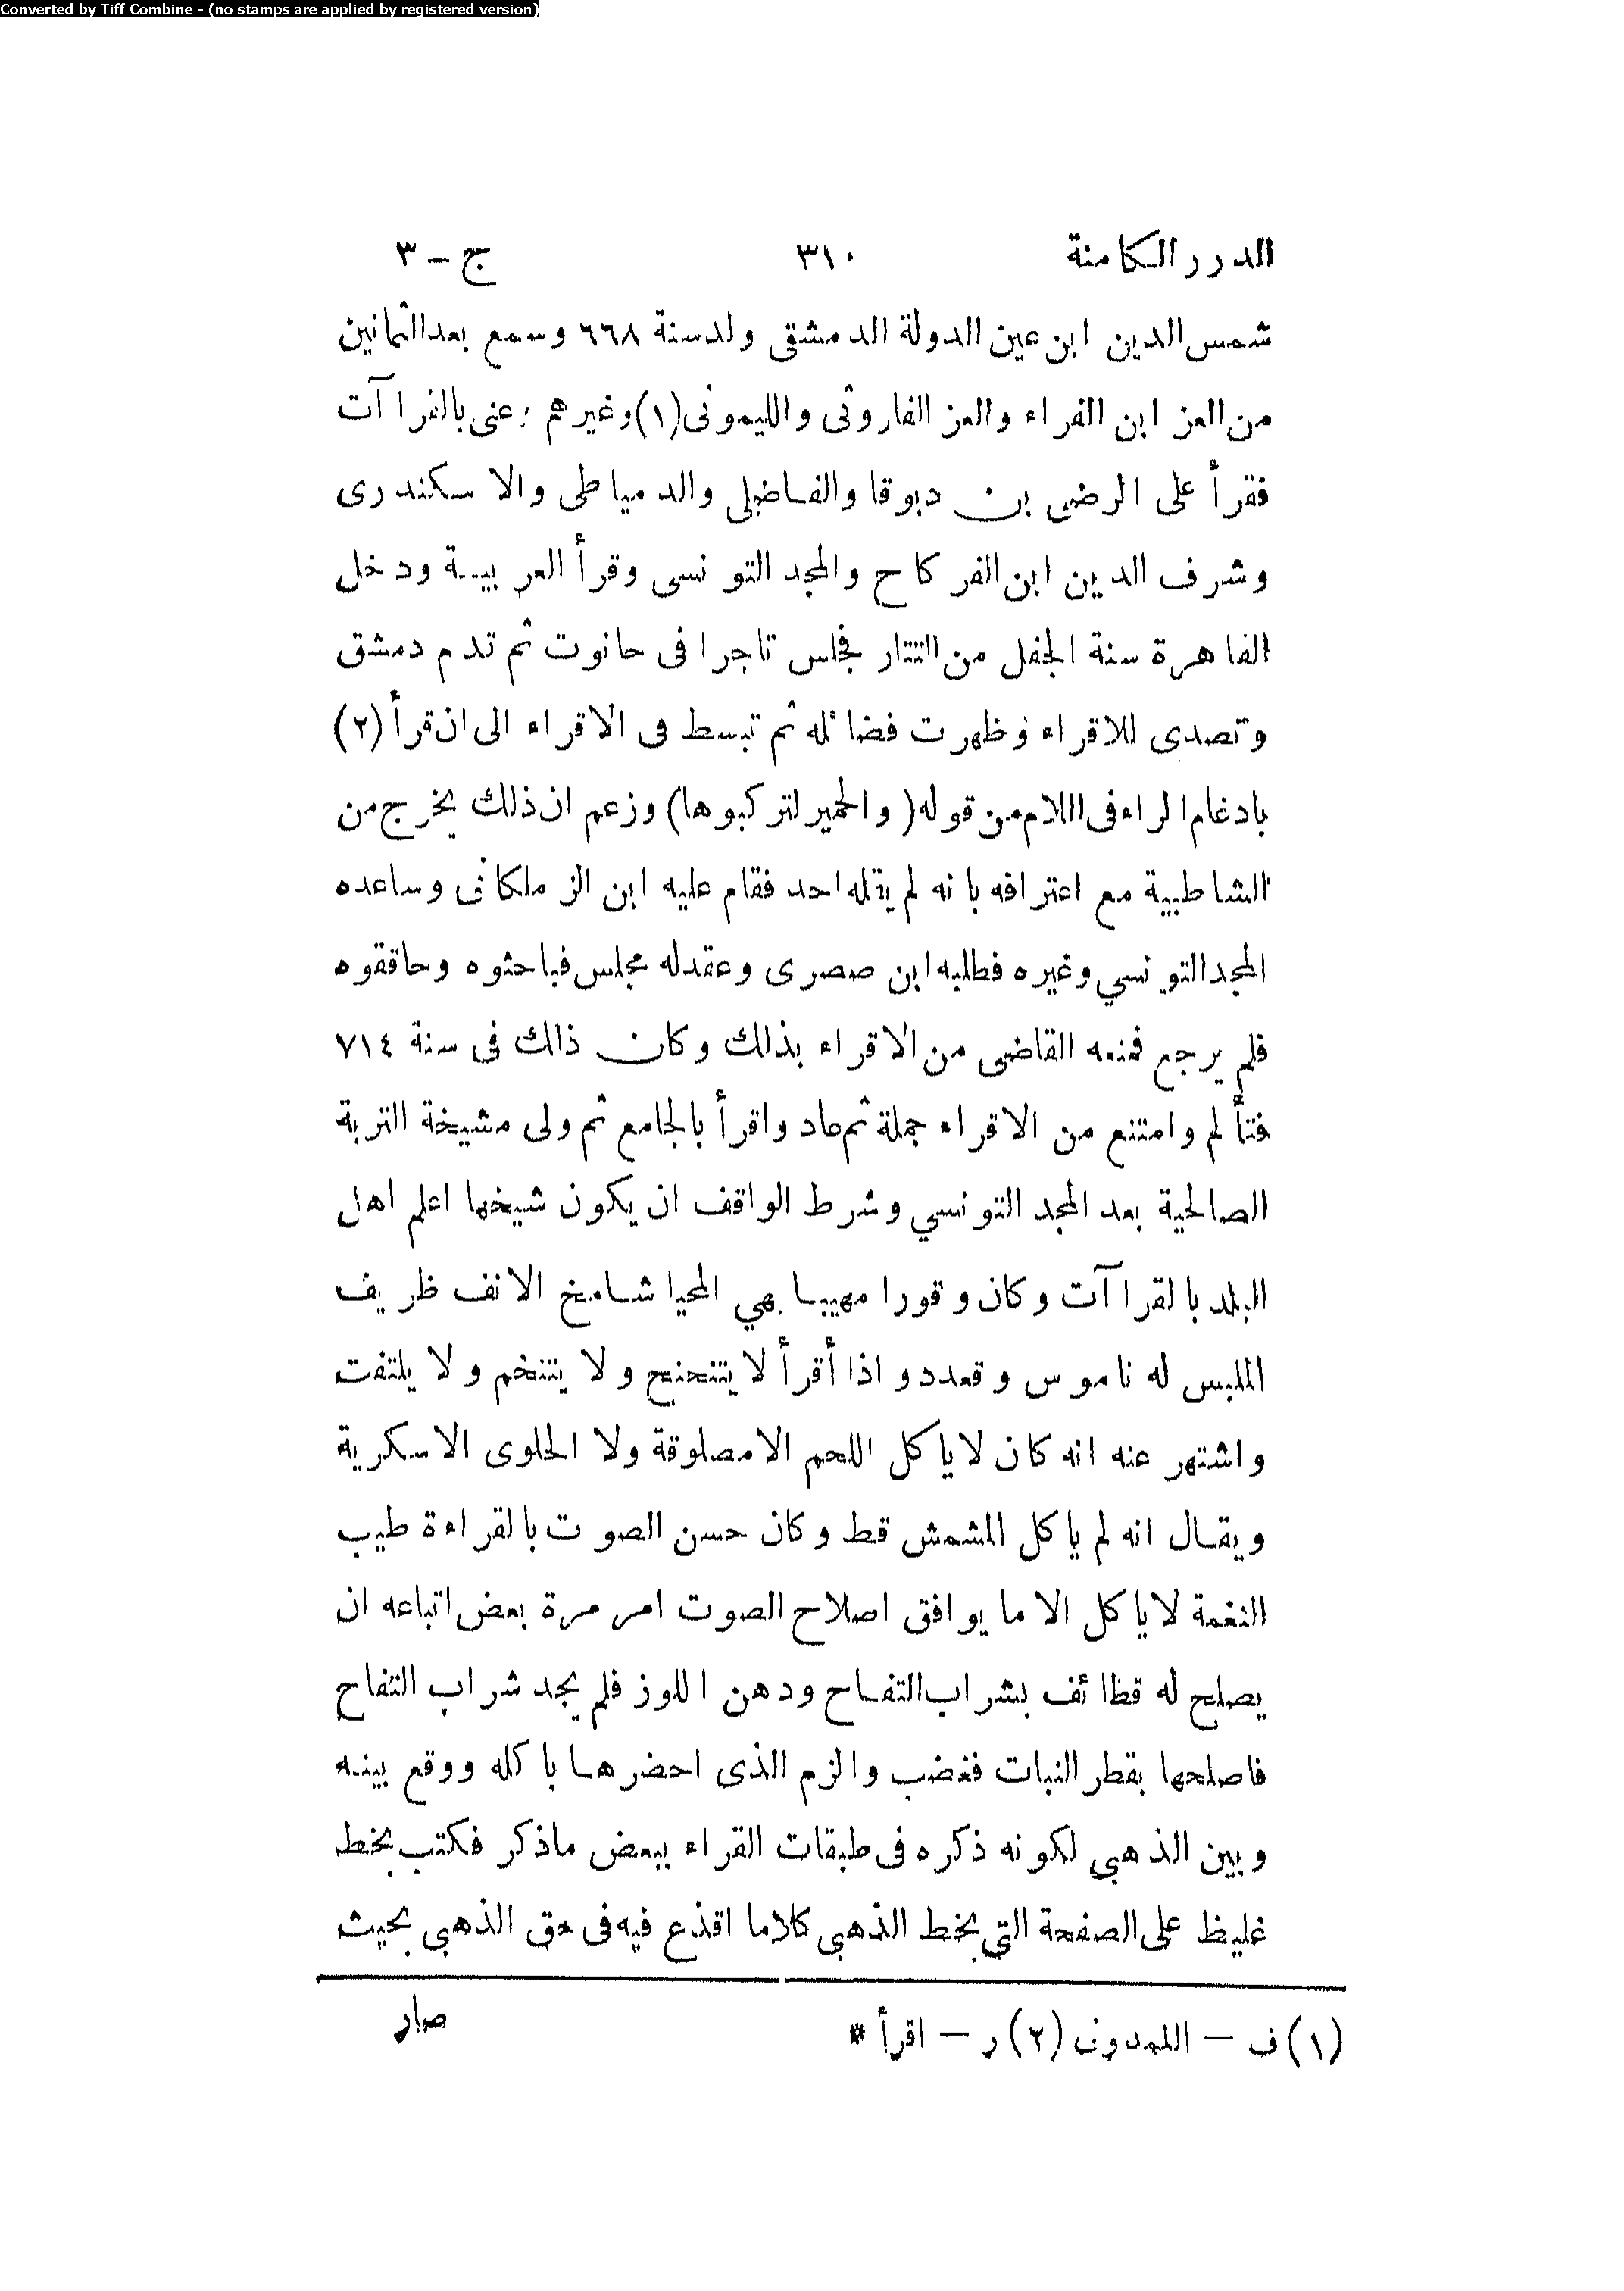 Converted by Tiff Combine - (no stamps are applied by registered version)
الدرر الكامنة ٣١٠ ج - ٣
شمس الدين ابن عين الدولة الدمشقى ولد سنة ٦٦٨ وسمع بعد الثمانين
من العز ابن الفراء والعز الفاروثى والليمونى (١) وغيرهم وعنى بالقراآت
فقرأ على الرضى بن دبوقا والفاضلى والدمياطى والاسكندرى
وشرف الدين ابن الفركاح والمجد التونسى وقرأ العربية ودخل
القاهرة سنة الجفل من التتار فجلس تاجرا فى حانوت ثم قدم دمشق
وتصدى للاقراء وظهرت فضائله ثم تبسط فى الاقراء الى ان قرأ (٢)
بادغام الراء فى اللام من قوله (والحمير لتركبوها) وزعم ان ذلك يخرج من
الشاطبية مع اعترافه بانه لم يقله احد فقام عليه ابن الزملكانى وساعده
المجد التونسي وغيره فطلبه ابن صصرى وعقد له مجلس فباحثوه وحاققوه
فلم يرجع فمنعه القاضى من الاقراء بذلك وكان ذاك فى سنة ٧١٤
فتألم وامتنع من الاقراء جملة ثم عاد واقرأ بالجامع ثم ولى مشيخة التربة
الصالحية بعد المجد التونسي وشرط الواقف ان يكون شيخها اعلم اهل
البلد بالقراآت وكان وقورا مهيبا بهي المحيا شامخ الانف ظريف
الملبس له ناموس وقعدد واذا أقرأ لا يتنحنح ولا يتنخم ولا يلتفت
واشتهر عنه انه كان لا ياكل اللحم الا مصلوقة ولا الحلوى الا سكرية
ويقال انه لم ياكل المشمش قط وكان حسن الصوت بالقراءة طيب
النغمة لا ياكل الا ما يوافق اصلاح الصوت امر مرة بعض اتباعه ان
يصلح له قطائف بشراب التفاح ودهن اللوز فلم يجد شراب التفاح
فاصلحها بقطر النبات فغضب والزم الذى احضرها باكله ووقع بينه
وبين الذهبي لكونه ذكره فى طبقات القراء ببعض ماذكر فكتب بخط
غليظ على الصفحة التي بخط الذهبى كلاما اقذع فيه فى حق الذهبى بحيث
صار
(١) ف — (٢) ر — اقرأ *